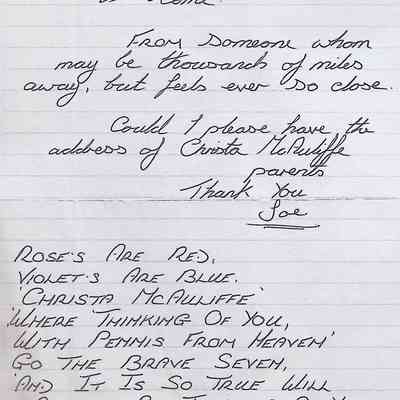 From Someone whom
may be thousands of miles
away, but feels ever so close.
Could I please have the
address of Christa McAuliffe
parents
Thank You
Joe
ROSE'S ARE RED,
VIOLET'S ARE BLUE.
'CHRISTA MCAULIFFE'
'WHERE THINKING OF YOU,
WITH PENNIS FROM HEAVEN'
GO THE BRAVE SEVEN,
'AND IT IS SO TRUE WILL